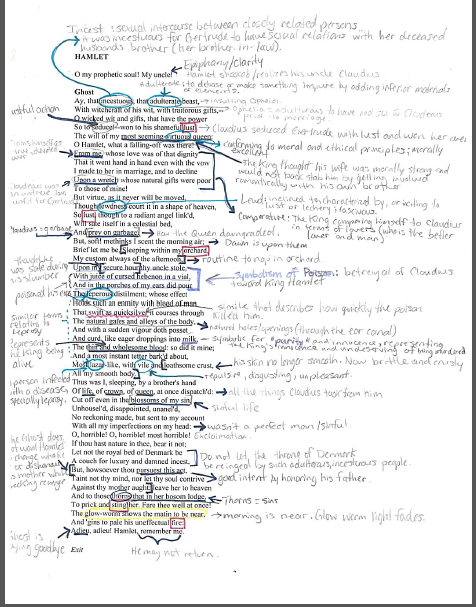 Incest: sexual intercourse between closely related persons
it was incestuous for Gertrude to have sexual relations with her deceased
husbands brother (her brother-in-law).
HAMLET
Epiphany/clarity
O my prophetic soul! My uncle!
Hamlet realizes his uncle Claudius
Adulterate: to debase or make something impure by adding inferior materials
or elements.
Ghost
Ay, that incestuous, that adulterate beast,
With witchcraft of his wit, with traitorous gifts,
O wicked wit and gifts, that have the power
So to seduce!--won to his shameful lust
Claudius seduced Gertrude with lust and won her over
The will of my most seeming-virtuous queen:
O Hamlet, what a falling-off was there!
conforming to moral and ethical principles; morally
excellent
From me, whose love was of that dignity
The King thought his wife was morally strong and
would not back stab him by getting involved
romantically with his own brother
That it went hand in hand even with the vow
I made to her in marriage, and to decline
Upon a wretch whose natural gifts were poor
To those of mine!
But virtue, as it never will be moved,
Lewd: inclined to, characterized by, or inciting to
lust or lechery
Though lewdness court it in a shape of heaven,
So lust, though to a radiant angel link'd,
comparative: The King comparing himself to Claudius
in terms of lovers (who is the better
lover and man)
Will sate itself in a celestial bed,
And prey on garbage.
How the Queen downgraded.
But, soft! methinks I scent the morning air;
Dawn is upon them.
Brief let me be. Sleeping within my orchard,
My custom always of the afternoon,
routine to nap in orchard
Upon my secure hour thy uncle stole,
With juice of cursed hebenon in a vial,
Symbolism of Poison: betrayal of Claudius
toward King Hamlet
And in the porches of my ears did pour
The leperous distilment; whose effect
Holds such an enmity with blood of man
simile that describe how quickly the poison
killed him.
That swift as quicksilver it courses through
The natural gates and alleys of the body,
natural holes/openings (through the ear canal)
And with a sudden vigour doth posset
And curd, like eager droppings into milk,
symbolic for "purity" and innocence, representing
the King's innocence and undeserving of being murdered
The thin and wholesome blood: so did it mine;
And a most instant tetter bark'd about,
Most lazar-like, with vile and loathsome crust,
his skin no longer smooth. Now brittle and crusty
All my smooth body.
repulsive, disgusting, unpleasant.
Thus was I, sleeping, by a brother's hand
Of life, of crown, of queen, at once dispatch'd:
all the things Claudius took from him
Cut off even in the blossoms of my sin,
sinful life
Unhousel'd, disappointed, unanel'd,
No reckoning made, but sent to my account
With all my imperfections on my head:
wasn't a perfect man/sinful.
O, horrible! O, horrible! most horrible!
Exclamation.
If thou hast nature in thee, bear it not;
Let not the royal bed of Denmark be
Do not let the throne of Denmark
be reigned by such adulterous, incestuous people.
A couch for luxury and damned incest.
But, howsoever thou pursuest this act,
Taint not thy mind, nor let thy soul contrive
good intent by honoring his father.
Against thy mother aught: leave her to heaven
And to those thorns that in her bosom lodge,
Thorns = sins
To prick and sting her. Fare thee well at once!
The glow-worm shows the matin to be near,
morning is near. Glow worm light fades.
And 'gins to pale his uneffectual fire:
Adieu, adieu! Hamlet, remember me.
Ghost is
saying goodbye
Exit
He may not return.